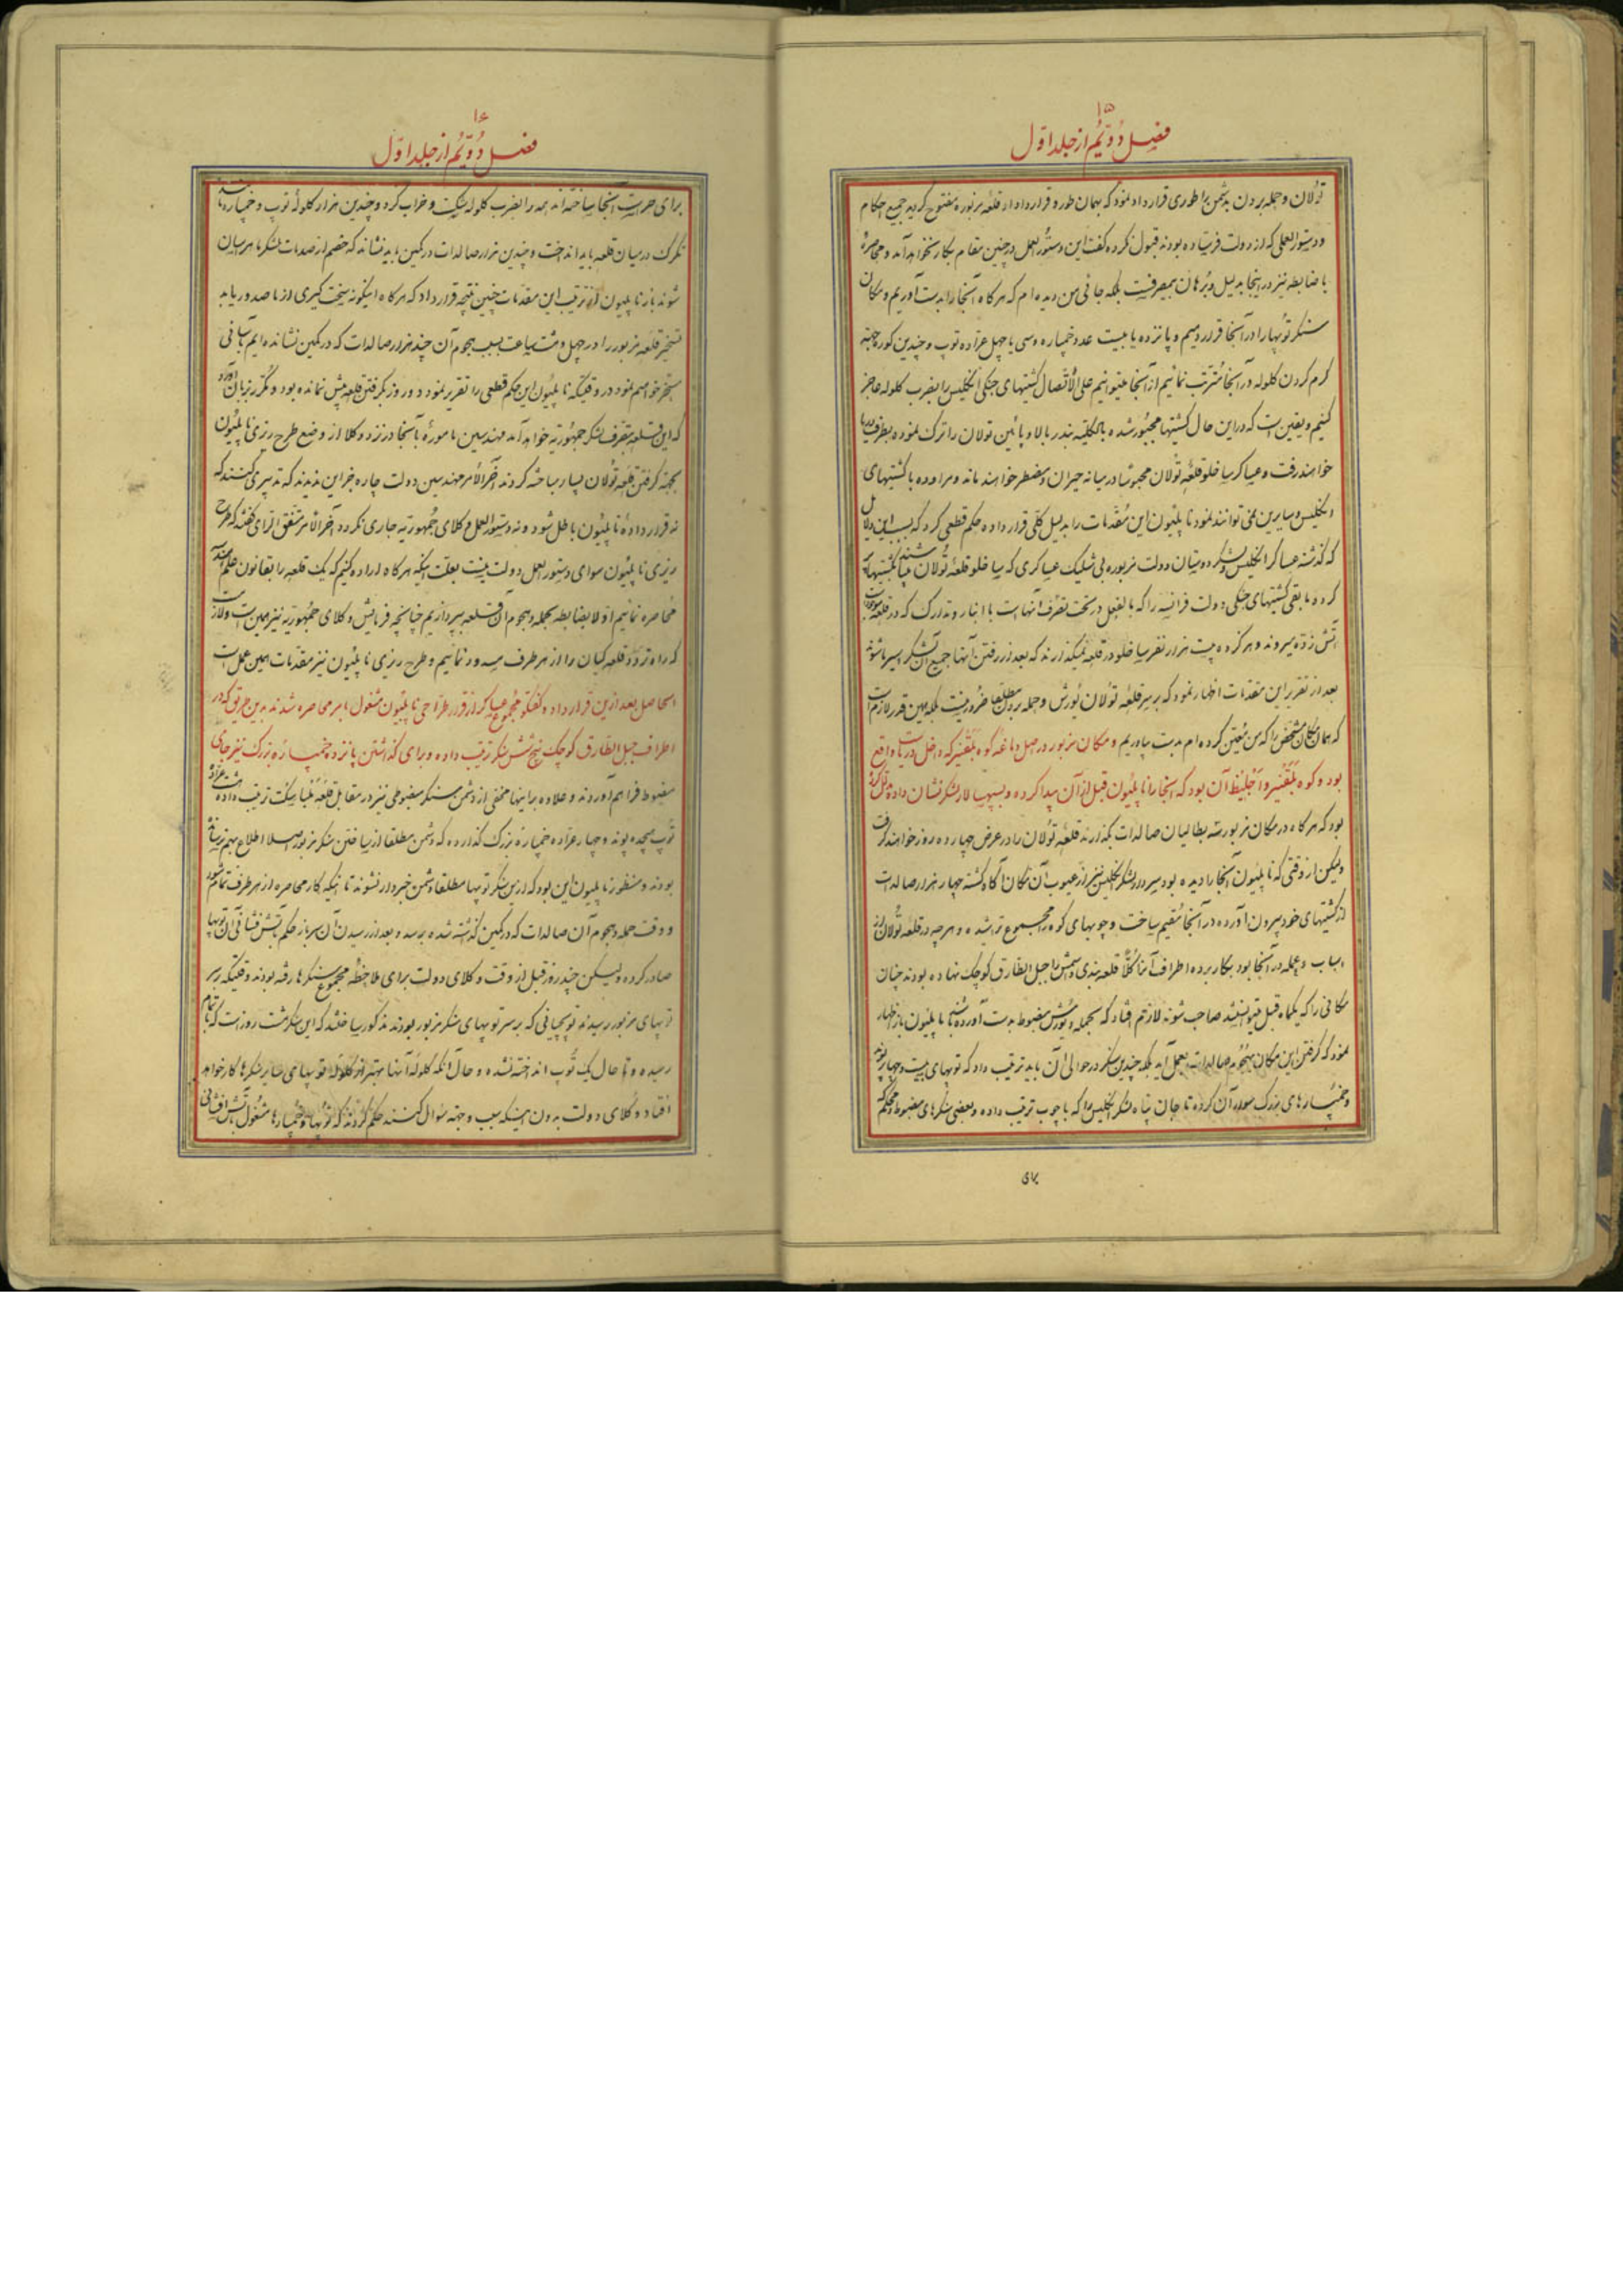 ۱۵
فصل دُوّیُم از جلد اوّل
تولان و حمله بردن بدشمن را طوری قرارداد نمود که بهمان طور و قرارداد او قلعه مزبوره مفتوح کردید جمیع احکام
و دستورالعملی که از دولت فرستاده بودند قبول نکرده گفت این دستورالعمل در چنین مقام بکار نخواهد آمد و محاصرهٔ
با ضابطه نیز در اینجا بدلیل و برهان بیمصرفست بلکه جائی من دیده‌ام که هرکاه آنجا را بدست آوریم و مکان
سنکر توپها را در آنجا قرار دهیم و پانزده یا بیست عدد خمپاره و سی یا چهل عراده توپ و چندین کوره بجهة
کرم کردن کلوله در آنجا مترتب نمائیم از آنجا میتوانیم علی الاتصال کشتیهای جنکی انکلیس را بضرب کلوله عاجز
کنیم و یقین است که در این حال کشتیها مجبور شده بالکلیه بندر بالا و پائین تولان را ترک نموده بطرف دریا
خواهند رفت و عساکر ساخلو قلعهٔ تولان مجبوسا در میانه حیران و مضطر خواهند ماند و مراوده با کشتیهای
انکلیس و سایرین نمی توانند نمود ناپلیون این مقدمات را بدلیل کلی قرار داده حکم قطعی کرد که بسبب این دلایل
که کذشته عساکر انکلیس و لشکر دوستان دولت مزبوره بی شلیک عساکری که ساخلو قلعهٔ تولان
کرد و مابقی کشتیهای جنکی دولت فرانسه را که بالفعل در تحت تصرف آنهاست با انبار و تدارک که در قلعه
آتش زده میروند و هرکز ده بیست هزار نفر ساخلو در قلعه نمیکذارند که بعد از رفتن آنها جمیع آن لشکر اسیر ما شوند
بعد از تقریر این مقدمات اظهار نمود که بر سر قلعهٔ تولان یورش و حمله بردن مطلقا ضرور نیست بلکه همین قدر لازم است
که همان مکان مشخص را که من معین کرده‌ام بدست بیاوریم و مکان مزبور در اصل دماغه کوه بلقیر که داخل دریاست واقع
بود و کوه بلقیر و اجلیط آن بود که اینجا را ناپلیون قبل از آن پیدا کرده و بسپهسالار لشکر نشان داده
بود که هرکاه در مکان مزبور سه بطالیان صالدات بکذارند قلعهٔ تولان را در عرض چهارده روز خواهند کرفت
ولیکن از وقتی که ناپلیون آنجا را دیده بود سردار لشکر انکلیس نیز از عیوب آن مکان آکاه کشته چهار هزار صالدات
از کشتیهای خود بیرون آورده در آنجا مقیم ساخت و چوبهای کوه را مجموع تراشیده و هر چه در قلعه تولان از
اسباب و عمله در آنجا بود بکار برده اطراف آنرا کلاً قلعه بندی و اسمش را جبل الطارق کوچک نهاده بودند چنان
مکانی را که یکماه قبل میتوانستند صاحب شوند لازم افتاد که بحمله و یورش مضبوط بدست آورده باشند ناپلیون باز اظهار
نمود که کرفتن این مکان بهجوم صالدات بعمل نمی آید بلکه چندین سنکر در حوالی آن باید ترتیب داد که توپهای بیست و چهار پوند
و خمپاره های بزرک سوار آن کرده تا جان پناه لشکر انکلیس را که با چوب ترتیب داده و بعضی سنکرهای مضبوط و محکم که
برای
۱۶
فصل دُوّیُم از جلد اوّل
برای حراست آنجا ساخته‌اند همه را بضرب کلوله شکست و خراب کرد و چندین هزار کلوله توپ و خمپاره مانند
تکرک در میان قلعه باید انداخت و چندین هزار صالدات در کمین باید نشاند که خصم از صدمات لشکر ما هراسان
شوند باز ناپلیون از ترتیب این مقدمات چنین نتیجه قرار داد که هرکاه اینکونه سخت کیری از ما صدور یابد
تسخیر قلعه مزبور را در چهل و هشت ساعت بسبب هجوم آن چند هزار صالدات که در کمین نشانده‌ایم بآسانی
مسخر خواهیم نمود در وقتیکه ناپلیون این حکم قطعی را تقریر نمود دو روز بکرفتن قلعه بیش نمانده بود و مکرر بزبان آورد
که این قلعه بتصرف لشکر جمهوریه خواهد آمد مهندسین ماموره بآنجا در نزد وکلا از وضع طرح ریزی ناپلیون
بجهة کرفتن قلعه تولان بسیار مباحثه کردند آخرالامر مهندسین دولت چاره جز این ندیدند که تدبیری کنند که
نه قرارداده ناپلیون باطل شود و نه دستورالعمل وکلای جمهوریه جاری نکردد آخرالامر متفق الرای کفتند که طرح
ریزی ناپلیون سوای دستورالعمل دولت نیست بعلت اینکه هرکاه اراده کنیم که یک قلعه را بقانون علم هندسه
محاصره نمائیم اولا بضابطه بحمله و هجوم آن قلعه بپردازیم چنانچه فرمایش وکلای جمهوریه نیز همین است و لازم است
که راه تردد قلعه کیان را از هر طرف مسدود نمائیم و طرح ریزی ناپلیون نیز مقدمات همین عمل است
الحاصل بعد از این قرارداده و کفتکو مجموع عساکر از قرار طراحی ناپلیون مشغول بامر محاصره شدند بدین طریق که در
اطراف جبل الطارق کوچک پنج شش سنکر ترتیب داده و برای کذاشتن پانزده خمپاره بزرک نیز جای
مضبوط فراهم آوردند و علاوه بر اینها مخفی از دشمن سنکر مضبوطی نیز در مقابل قلعه ملباسکت ترتیب داده هشت عراده
توپ هیجده پوند و چهار عراده خمپارهٔ بزرک کذارده که دشمن مطلقا از ساختن سنکر مزبور اصلا اطلاع بهم نرسانیده
بودند و منظور ناپلیون این بود که از این سنکر توپها مطلقا دشمن خبردار نشوند تا اینکه کار محاصره از هر طرف تمام شود
و وقت حمله و هجوم آن صالدات که در کمین کذاشته شده برسد و بعد از رسیدن آن سرباز حکم بآتش فشانی آن توپها
صادر کرده ولیکن چند روز قبل از وقت وکلای دولت برای ملاحظهٔ مجموع سنکرها رفته بودند وقتیکه بر سر
توپهای مزبور رسیدند توپچیانی که بر سر توپهای سنکر مزبور بودند مذکور ساختند که این سنکر هشت روز است که باتمام
رسیده و تا حال یک توپ انداخته نشده و حال آنکه کلولهٔ آنها بهتر از کلوله توپهای سایر سنکرها کار خواهد
افتاد وکلای دولت بدون اینکه سبب و جهة سؤال کنند حکم کردند که توپها و خمپارها مشغول بآتش افشانی